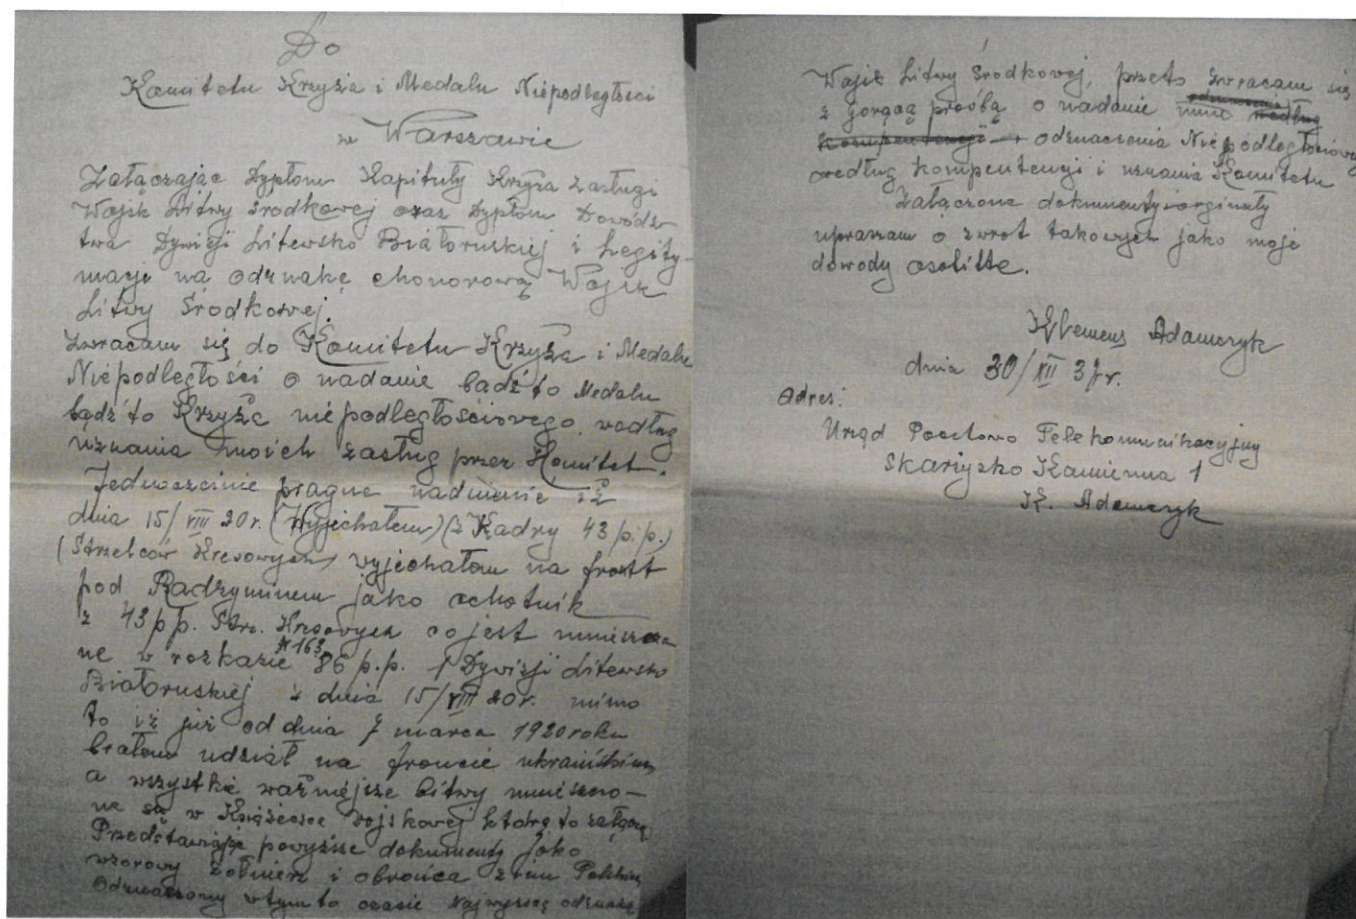 Do
Komitetu Krzyża i Medalu Niepodległości
w Warszawie
Załączając Dypłom Kapituły Krzyża Zasługi
Wojsk Litwy Środkowej oraz Dypłom Dowódz
twa Dywizji Litewsko Białoruskiej i Legity-
macje na odznakę chonorową Wojsk
Litwy Środkowej.
Zwracam się do Komitetu Krzyża i Medalu
Niepodległości o nadanie bądź to Medalu
bądź to Krzyża niepodległościowego według
uznania moich zasług przez Komitet.
Jednocześnie pragnę nadmienić iż
dnia 15/VIII 20r. (Wyjechałem) (z Kadry 43 p.p.)
(Strzelców Kresowych) wyjechałem na front
pod Radzyminem jako ochotnik
z 43 p.p. Strz. Kresowych co jest umieszczo
ne w rozkazie N 163 86 p.p. 1 Dywizji Litewsko
Białoruskiej z dnia 15/VIII 20r. mimo
to iż już od dnia 7 marca 1920 roku
brałem udział na froncie ukraińskim
a wszystkie ważniejsze bitwy umieszczo-
ne są w Książeczce wojskowej którą to załączę
Przedstawiając powyższe dokumenty jako
wzorowy żołnierz i obrońca ziem Polskich
Odznaczony w tym to czasie Najwyższą odznaką
Wojsk Litwy Środkowej, przeto zwracam się
z gorącą prośbą o nadanie mnie według
kompentencji odznaczenia Niepodległościowego
według kompentencji i uznania Komitetu
Załączone dokumenty orginały
upraszam o zwrot takowych jako moje
dowody osobiste.
Klemens Adamczyk
dnia 30/XII 37r.
Adres:
Urząd Pocztowo Telekomunikacyjny
Skarżysko Kamienna 1
K. Adamczyk